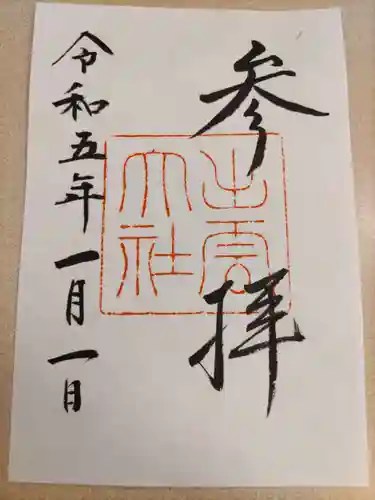 参拝
出雲大社
令和五年一月一日